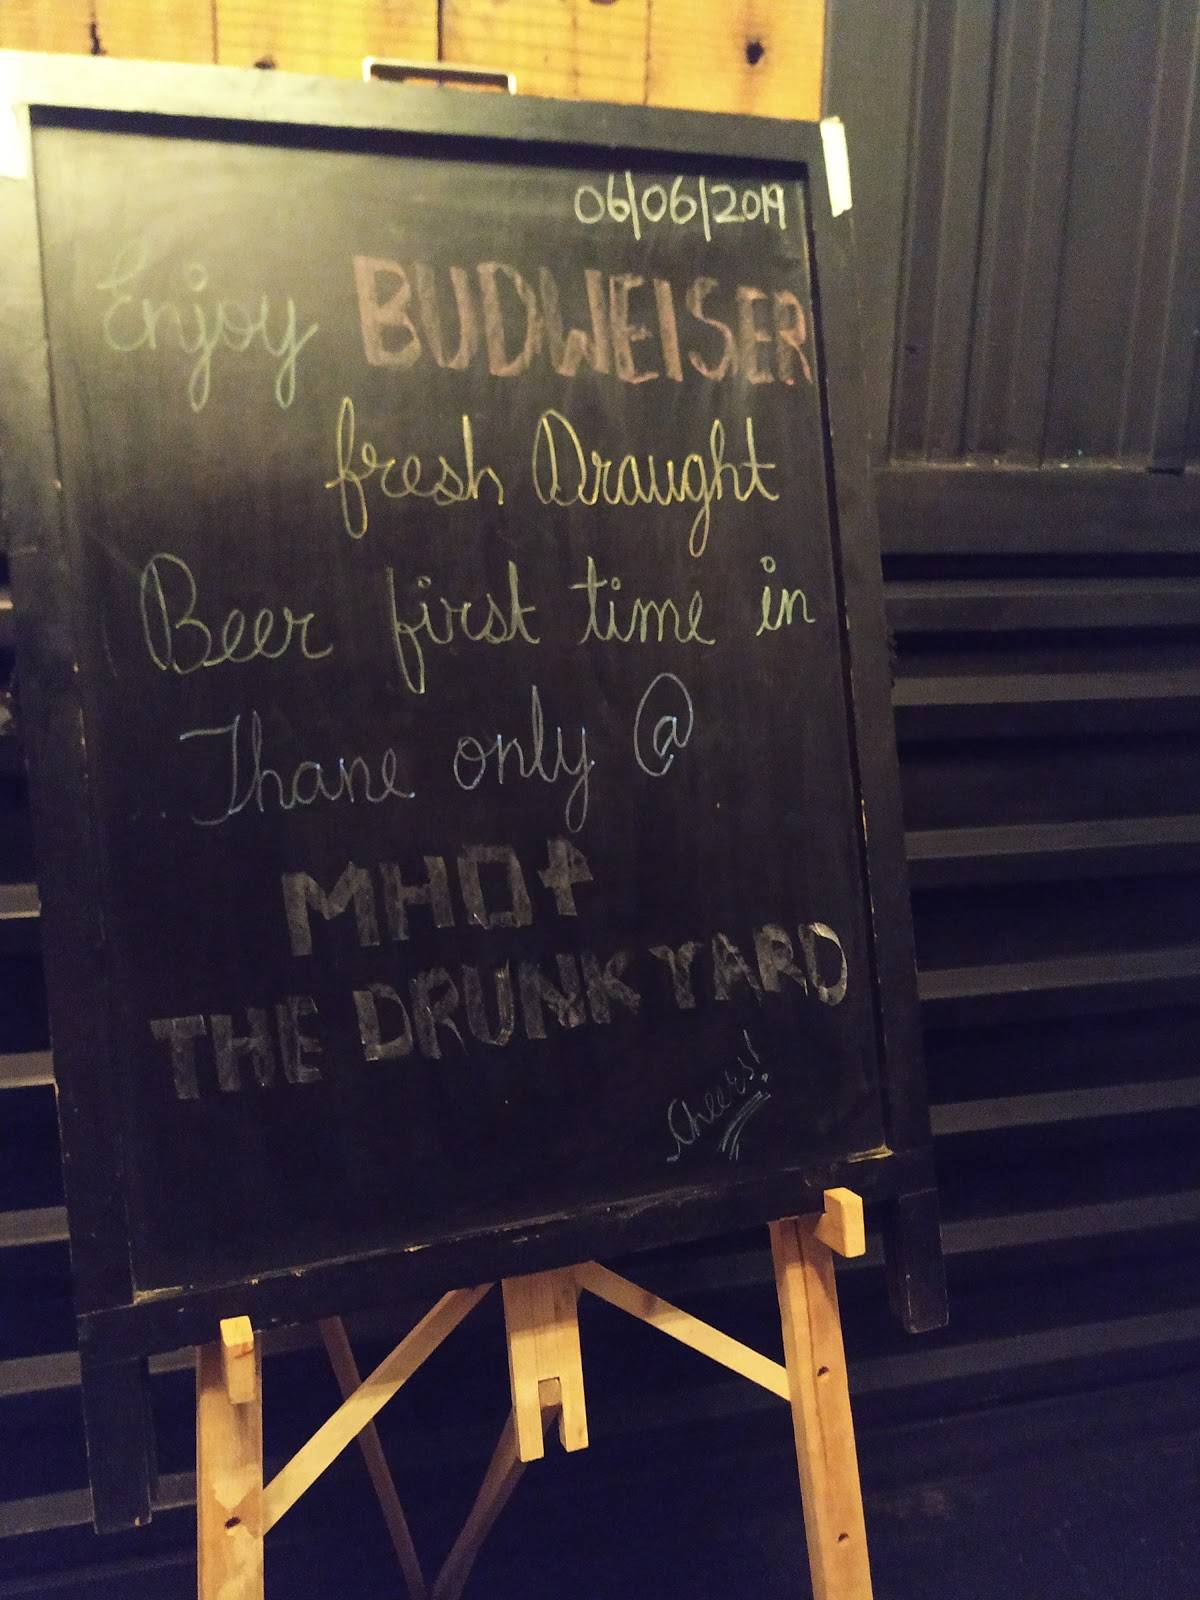 06/06/2019
Enjoy BUDWEISER
fresh Draught
Beer first time in
Thane only @
MHO4
THE DRUNK YARD
Cheers!